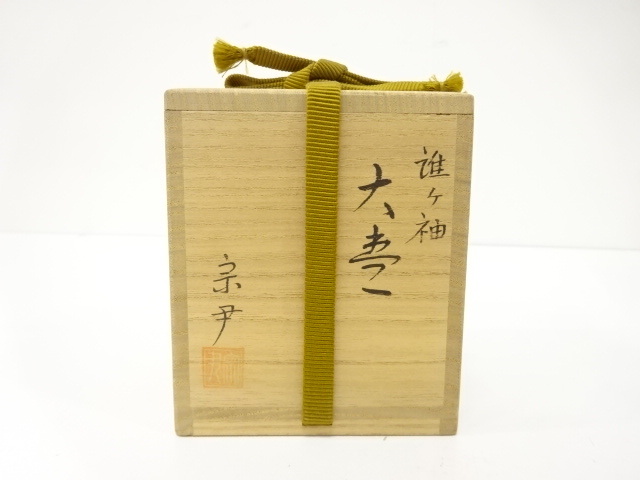 誰ヶ袖
大棗
宗尹